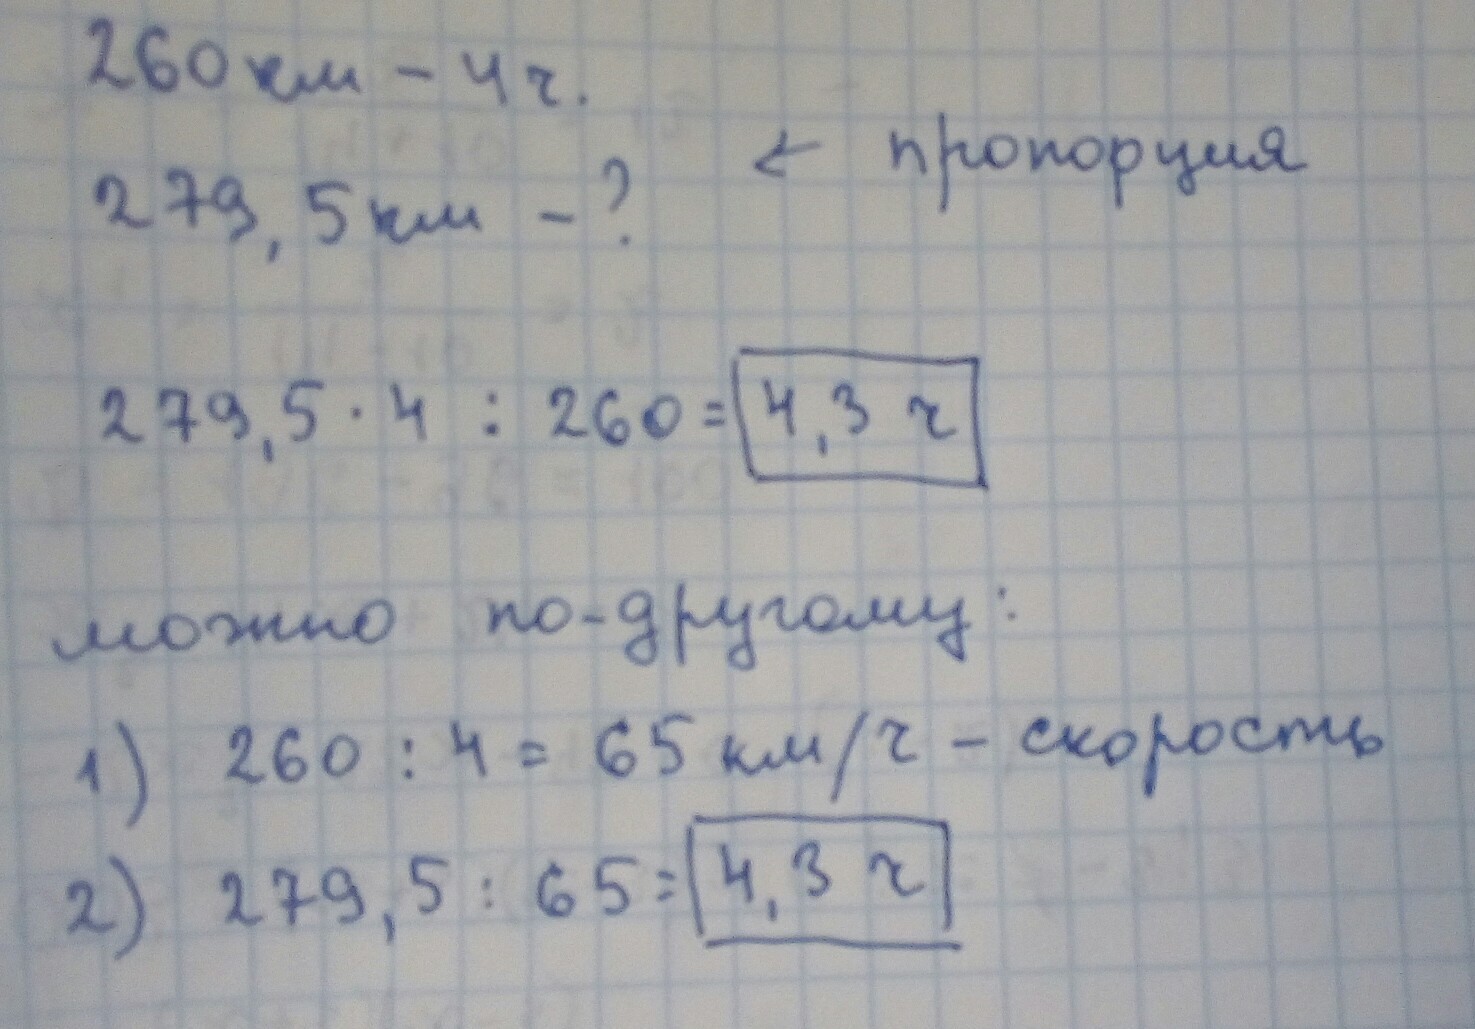 260 км - 4 ч.
279,5 км - ?
← пропорция
279,5 · 4 : 260 = 4,3 ч
можно по-другому:
1) 260 : 4 = 65 км/ч - скорость
2) 279,5 : 65 = 4,3 ч